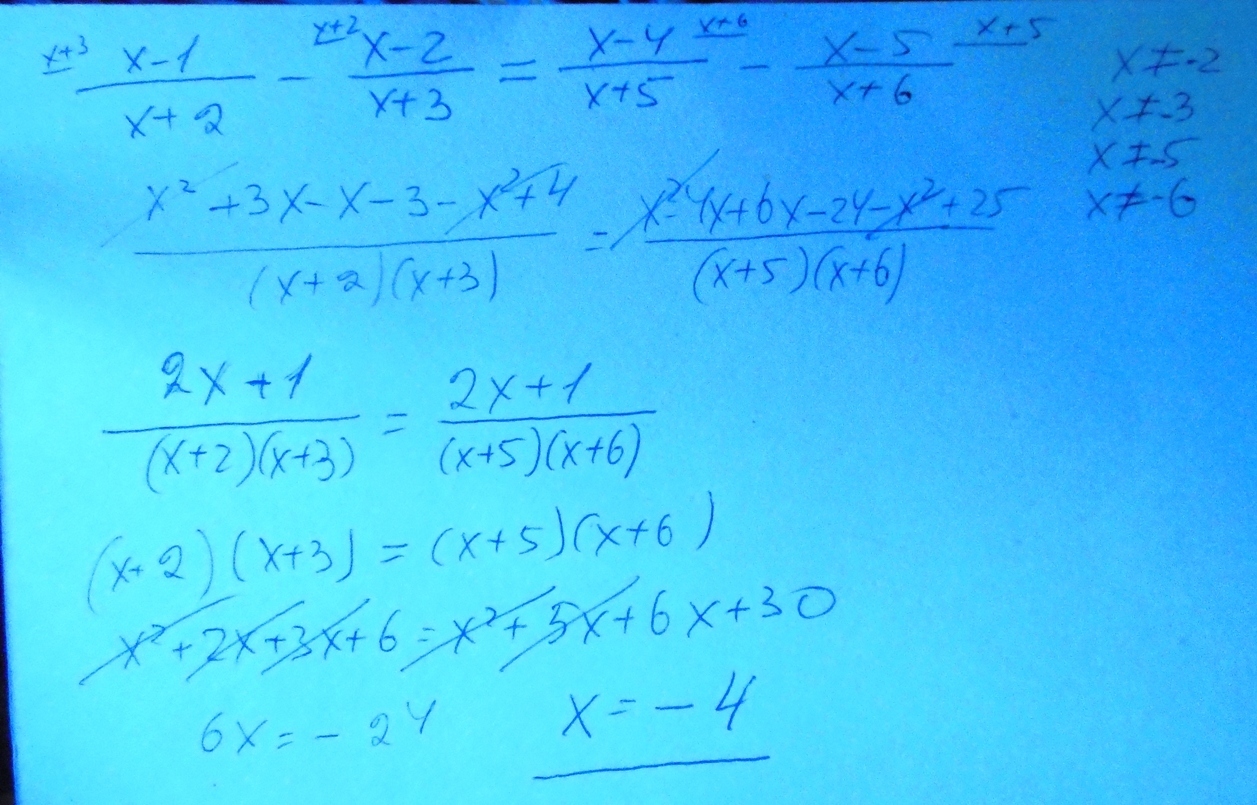 x+3 (x-1)/(x+2) - x+2 (x-2)/(x+3) = (x-4)/(x+5) x+6 - (x-5)/(x+6) x+5
x≠-2
x≠-3
x≠-5
x≠-6
(x²+3x-x-3-x²+4)/((x+2)(x+3)) = (x²-4x+6x-24-x²+25)/((x+5)(x+6))
(2x+1)/((x+2)(x+3)) = (2x+1)/((x+5)(x+6))
(x+2)(x+3) = (x+5)(x+6)
x²+2x+3x+6=x²+5x+6x+30
6x=-24 x=-4